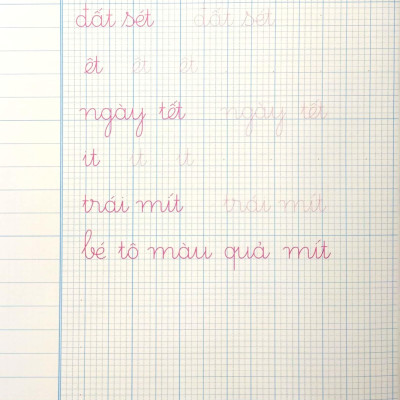 đất sét đất sét
êt êt êt
ngày tết ngày tết
it it it
trái mít trái mít
bé tô màu quả mít